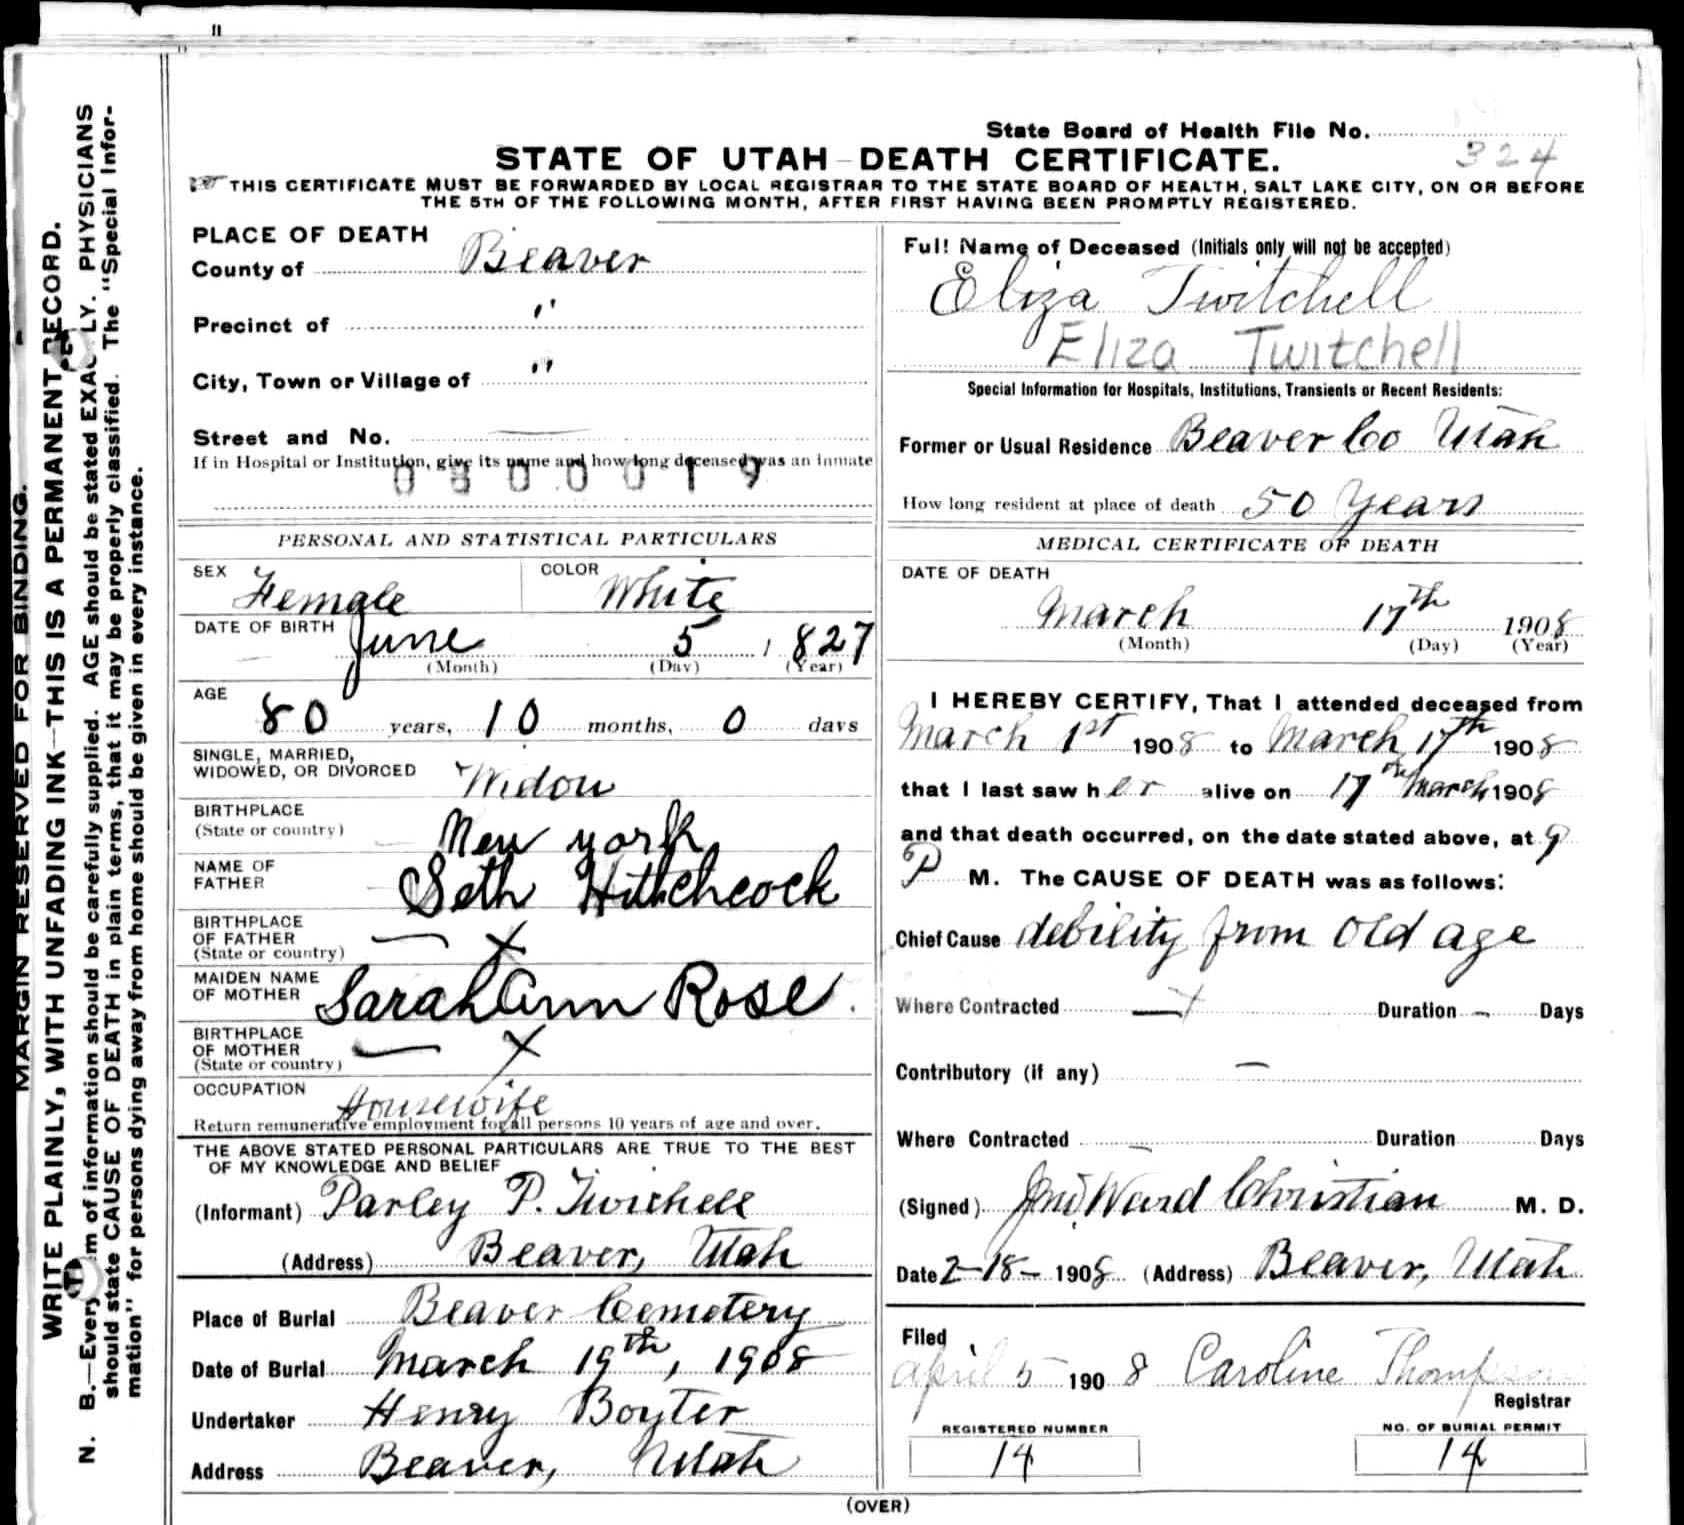 State Board of Health File No.
324
STATE OF UTAH—DEATH CERTIFICATE.
THIS CERTIFICATE MUST BE FORWARDED BY LOCAL REGISTRAR TO THE STATE BOARD OF HEALTH, SALT LAKE CITY, ON OR BEFORE
THE 5TH OF THE FOLLOWING MONTH, AFTER FIRST HAVING BEEN PROMPTLY REGISTERED.
MARGIN RESERVED FOR BINDING.
WRITE PLAINLY, WITH UNFADING INK—THIS IS A PERMANENT RECORD.
N. B.—Every item of information should be carefully supplied. AGE should be stated EXACTLY. PHYSICIANS
should state CAUSE OF DEATH in plain terms, that it may be properly classified. The "Special Infor-
mation" for persons dying away from home should be given in every instance.
PLACE OF DEATH
County of Beaver
Precinct of "
City, Town or Village of "
Street and No. —
If in Hospital or Institution, give its name and how long deceased was an inmate
0300019
PERSONAL AND STATISTICAL PARTICULARS
SEX Female COLOR White
DATE OF BIRTH June 5, 1827
(Month) (Day) (Year)
AGE 80 years, 10 months, 0 days
SINGLE, MARRIED,
WIDOWED, OR DIVORCED Widow
BIRTHPLACE
(State or country) New york
NAME OF
FATHER Seth Hitchcock
BIRTHPLACE
OF FATHER — X
(State or country)
MAIDEN NAME
OF MOTHER Sarah Ann Rose.
BIRTHPLACE
OF MOTHER — X
(State or country)
OCCUPATION Housewife
Return remunerative employment for all persons 10 years of age and over.
THE ABOVE STATED PERSONAL PARTICULARS ARE TRUE TO THE BEST
OF MY KNOWLEDGE AND BELIEF
(Informant) Parley P. Twichell
(Address) Beaver, Utah
Place of Burial Beaver Cemetery
Date of Burial March 19th, 1908
Undertaker Henry Boyter
Address Beaver, Utah
Full Name of Deceased (Initials only will not be accepted)
Eliza Twitchell
Eliza Twitchell
Special Information for Hospitals, Institutions, Transients or Recent Residents:
Former or Usual Residence Beaver Co Utah
How long resident at place of death 50 Years
MEDICAL CERTIFICATE OF DEATH
DATE OF DEATH
March 17th 1908
(Month) (Day) (Year)
I HEREBY CERTIFY, That I attended deceased from
March 1st 1908 to March 17th 1908
that I last saw her alive on 17 March 1908
and that death occurred, on the date stated above, at 9
P M. The CAUSE OF DEATH was as follows:
Chief Cause debility from old age
Where Contracted — X Duration — Days
Contributory (if any) —
Where Contracted — Duration Days
(Signed) Jno. Ward Christian M. D.
Date 2-18-1908 (Address) Beaver, Utah
Filed
April 5 1908 Caroline Thompson
Registrar
REGISTERED NUMBER
14
NO. OF BURIAL PERMIT
14
(OVER)